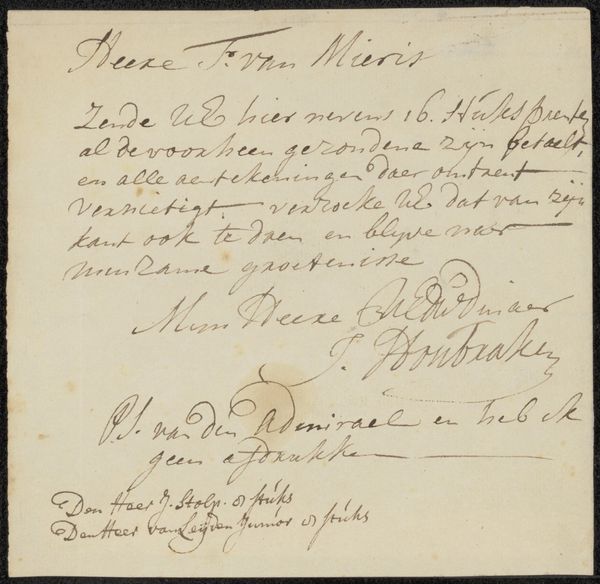 Heere Fr. van Mieris
Zende UE hier nevens 16. Stuks prenten
al de voorheen gezondene zijn betaelt,
en alle aentekeningen daer omtrent
vernietigt verzoeke UE dat van zijn
kant ook te doen en blyve naer
minzame groetenisse
Myn Heere UEDWDienaer
J. Houbraken
P.S. van den Admirael en heb ik
geen afdrukken
Den Heer J. Stolp. 8 stuks
Den Heer van Leyden Junior 8 stuks